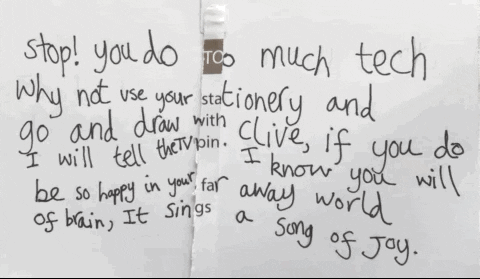 stop! you do TOo much tech
Why not use your stationery and
go and draw with Clive, if you do
I will tell the TV pin. I know you will
be so happy in your far away world
of brain, It sings a song of Joy.